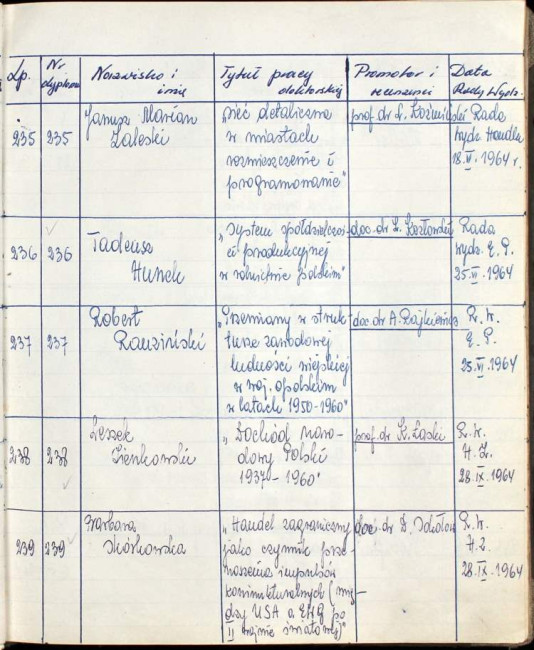 Lp.
Nr
dyplomu
Nazwisko i
imię
Tytuł pracy
doktorskiej
Promotor i
recenzenci
Data
Rady Wydz.
235
235
Janusz Marian
Zaleski
sieć detaliczna
w miastach
rozmieszczenie i
programowanie"
prof. dr L. Koźmiński
Rada
wydz. Handlu
18.VI.1964 r.
236
236
Tadeusz
Hunek
„System spółdzielczoś
ci produkcyjnej
w rolnictwie polskim"
doc. dr Z. Kozłowski
Rada
wydz. E. P.
25.VI.1964
237
237
Robert
Rauziński
„Przemiany w struk-
turze zawodowej
ludności wiejskiej
w woj. opolskim
w latach 1950-1960"
doc dr A. Rajkiewicz
R. W.
E. P.
25.VI.1964
238
238
Leszek
Zienkowski
„Dochód naro-
dowy Polski
1937-1960"
prof. dr K. Łaski
R. W.
H. Z.
28.IX.1964
239
239
Barbara
Skórkowska
„Handel zagraniczny
jako czynnik prze-
noszenia impulsów
koniunkturalnych (mię-
dzy USA a EWG po
II wojnie światowej)"
doc. dr D. Sokołow
R. W.
H. Z.
28.IX.1964